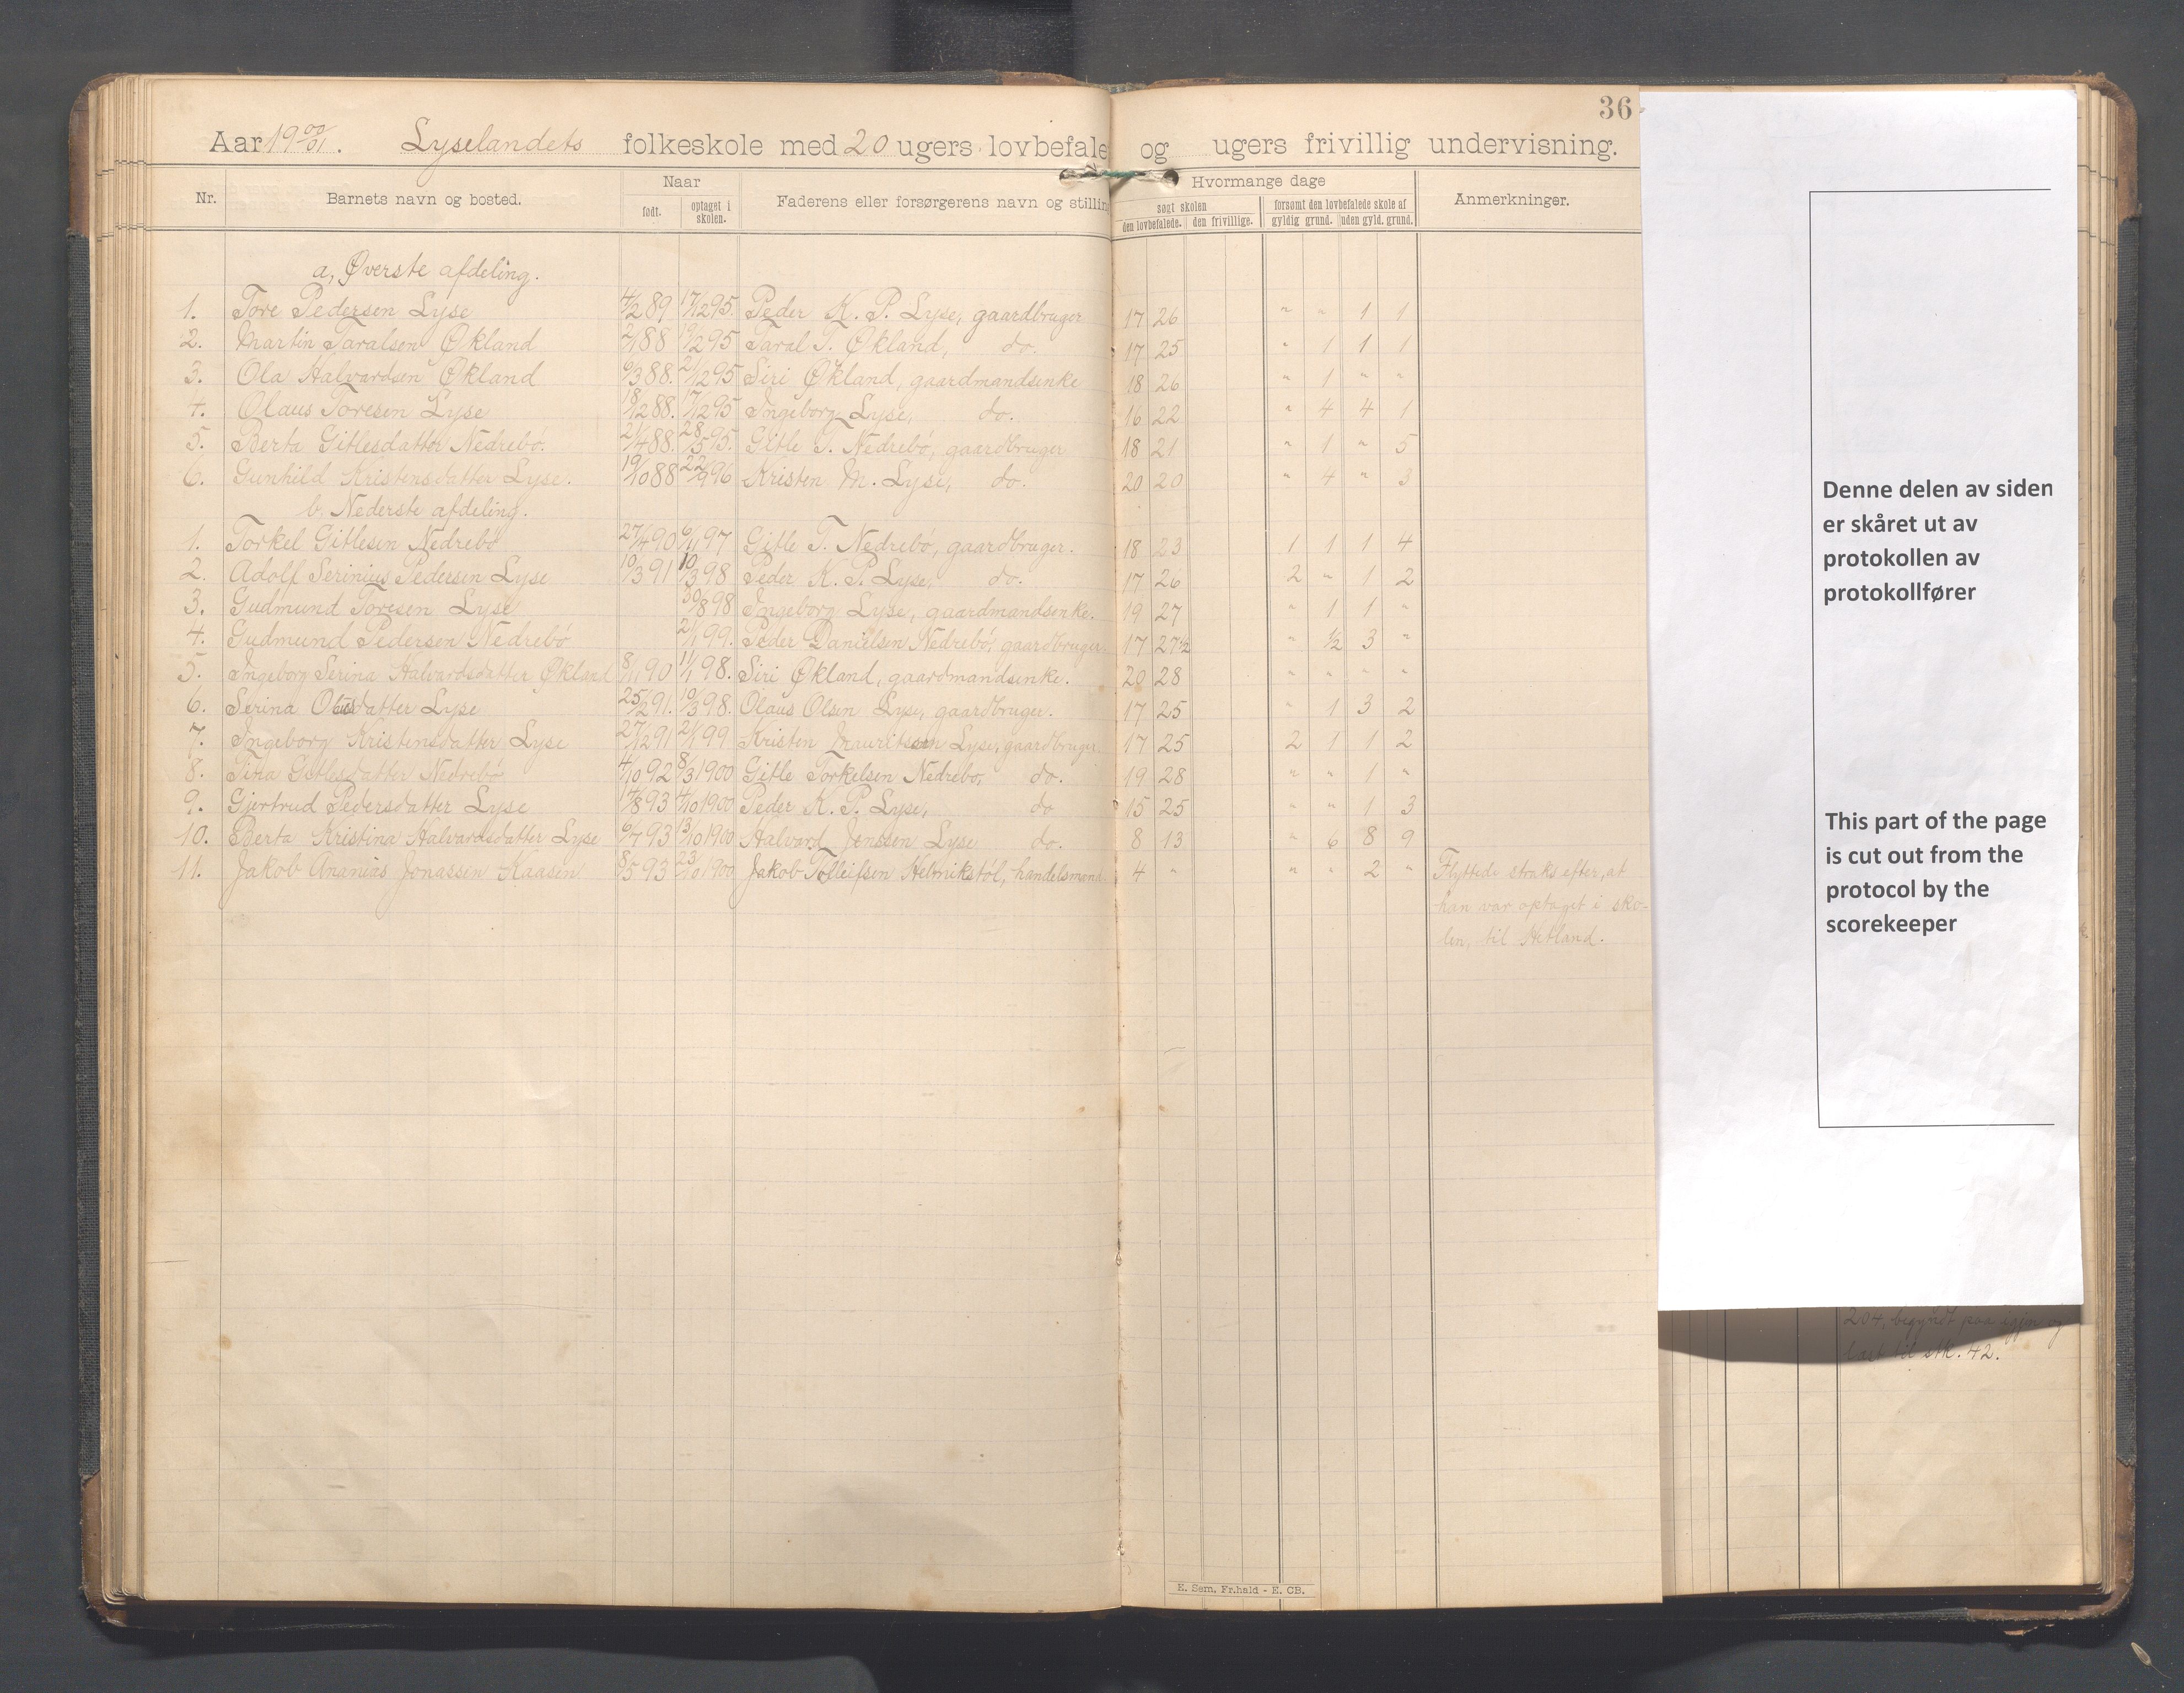 36
Aar 19 00/01. Lyselandets folkeskole med 20 ugers lovbefale og ugers frivillig undervisning.
Nr. Barnets navn og bosted. Naar født. optaget i skolen. Faderens eller forsørgerens navn og stilling Hvormange dage søgt skolen den lovbefalede. den frivillige. forsømt den lovbefalede skole af gyldig grund. uden gyld. grund. Anmerkninger.
a, Øverste afdeling.
1. Tore Pedersen Lyse 4/2 89 17/12 95. Peder K. P. Lyse, gaardbruger 17 26 " " 1 1
2. Martin Taralsen Økland 2/1 88 19/2 95 Taral T. Økland, do. 17 25 " 1 1 1
3. Ola Halvardsen Økland 6/3 88. 21/2 95 Siri Økland, gaardmandsenke 18 26 " 1 " "
4. Olaus Toresen Lyse 18/12 88. 17/12 95 Ingeborg Lyse, do. 16 22 " 4 4 1
5. Berta Gitlesdatter Nedrebö. 21/4 88. 28/5 95. Gitle T. Nedrebö, gaardbruger 18 21 " 1 " 5
6. Gunhild Kristensdatter Lyse. 19/10 88 22/9 96 Kristen M. Lyse, do. 20 20 " 4 " 3
b. Nederste afdeling.
1. Torkel Gitlesen Nedrebö 27/4 90 6/1 97 Gitle T. Nedrebö, gaardbruger. 18 23 1 1 1 4
2. Adolf Serinius Pedersen Lyse 10/3 91 10/3 98 Peder K. P. Lyse, do. 17 26 2 " 1 2
3. Gudmund Toresen Lyse 30/8 98 Ingeborg Lyse, gaardmandsenke. 19 27 " 1 1 "
4. Gudmund Pedersen Nedrebö 21/1 99. Peder Danielsen Nedrebö, gaardbruger. 17 27½ " ½ 3 "
5. Ingeborg Serina Halvardsdatter Økland 8/1 90 11/1 98. Siri Økland, gaardmandsenke. 20 28 " " " "
6. Serina Olausdatter Lyse 25/2 91. 10/3 98. Olaus Olsen Lyse, gaardbruger. 17 25 " 1 3 2
7. Ingeborg Kristensdatter Lyse 27/12 91 2/1 99 Kristen Mauritsen Lyse, gaardbruger. 17 25 2 1 1 2
8. Tina Gitlesdatter Nedrebö 4/10 92 8/3 1900 Gitle Torkelsen Nedrebö, do. 19 28 " " 1 "
9. Gjertrud Pedersdatter Lyse 17/8 93 4/10 1900 Peder K. P. Lyse, do 15 25 " " 1 3
10. Berta Kristina Halvardsdatter Lyse 6/7 93 13/10 1900 Halvard Jenssen Lyse do. 8 13 " 6 8 9
11. Jakob Ananias Jonassen Kaasen 8/5 93 23/10 1900 Jakob Tolleifsen handelsmand 4 " " " 2 " Flyttede straks efter, at
han var optaget i sko-
len, til Hetland.
Denne delen av siden
er skåret ut av
protokollen av
protokollfører
This part of the page
is cut out from the
protocol by the
scorekeeper
204, begyndt paa igjen og
læst til stk. 42.
E. Sem, Fr.hald - E. CB.